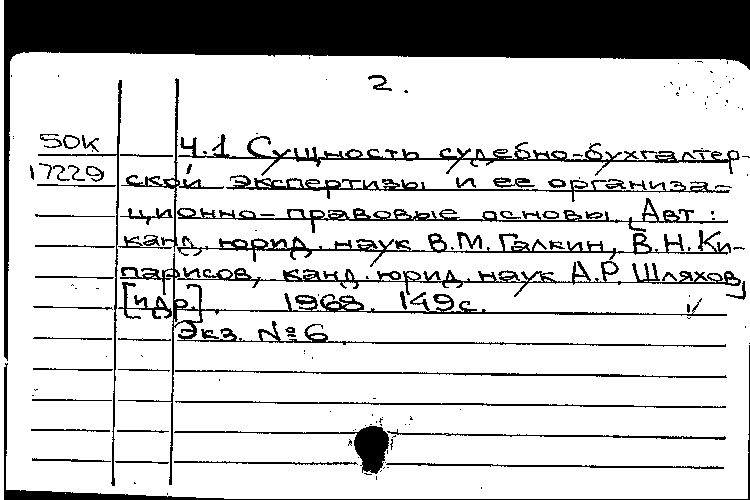 2.
50К Ч.1 Сущность судебно-бухгалтер-
17229 ской экспертизы и ее организа-
ционно-правовые основы. [Авт.:
канд. юрид. наук В.М. Галкин, В.Н. Ки-
парисов, канд. юрид. наук А.Р. Шляхов]
[и др.]. 1968. 149с.
Экз. №6.